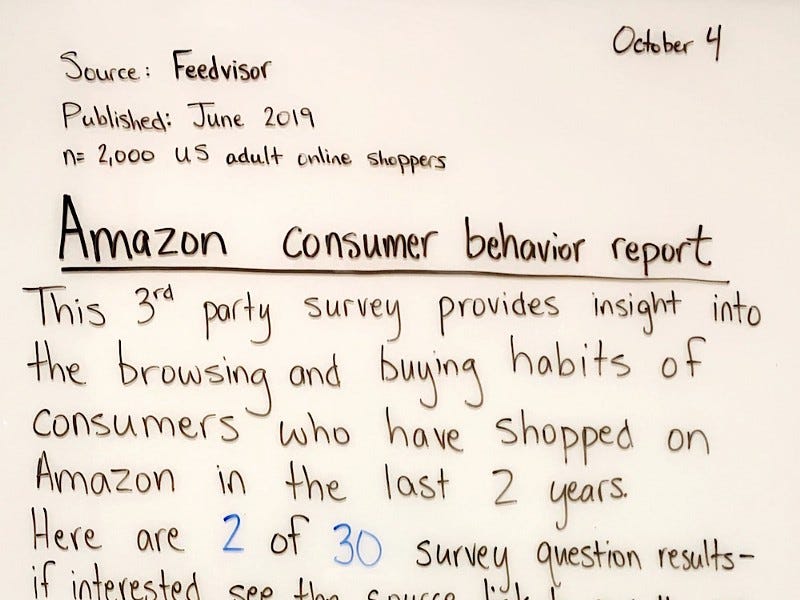 October 4
Source: Feedvisor
Published: June 2019
n= 2,000 US adult online shoppers
Amazon consumer behavior report
This 3rd party survey provides insight into
the browsing and buying habits of
consumers who have shopped on
Amazon in the last 2 years.
Here are 2 of 30 survey question results-
if interested see the source link